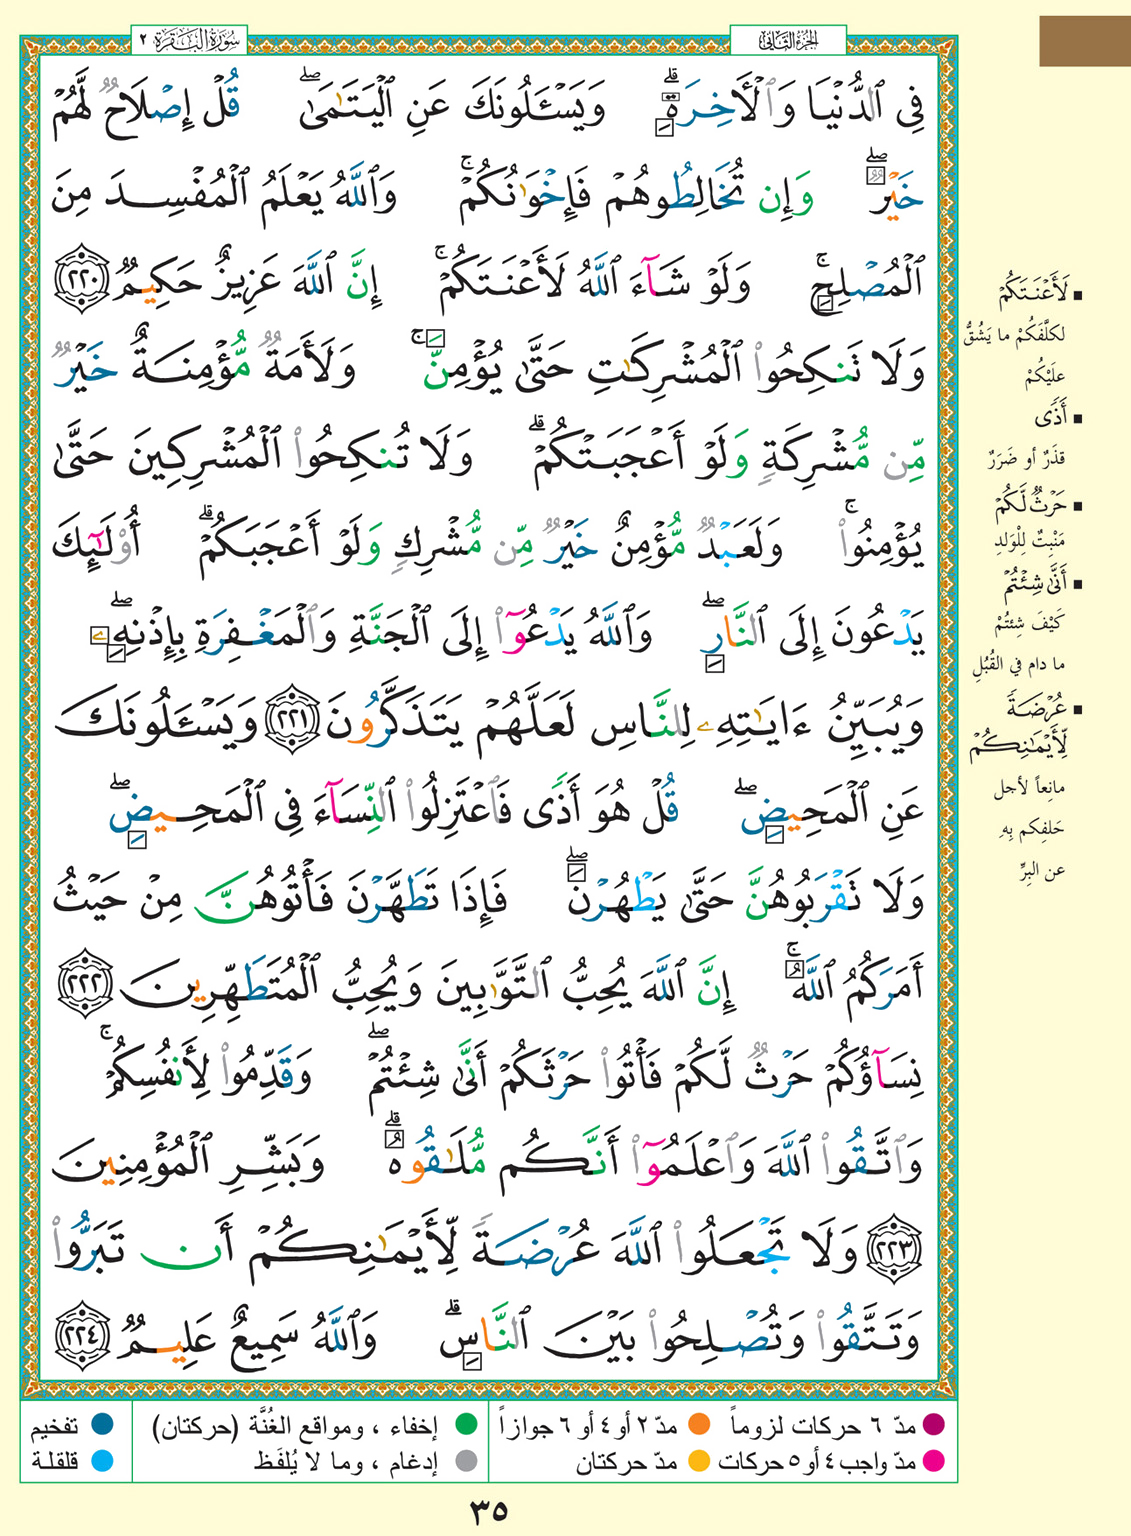 الجزء الثاني
سورة البقرة ٢
فِى ٱلدُّنۡيَا وَٱلۡأٓخِرَةِۗ وَيَسۡـَٔلُونَكَ عَنِ ٱلۡيَتَٰمَىٰۖ قُلۡ إِصۡلَاحٞ لَّهُمۡ
خَيۡرٞۖ وَإِن تُخَالِطُوهُمۡ فَإِخۡوَٰنُكُمۡۚ وَٱللَّهُ يَعۡلَمُ ٱلۡمُفۡسِدَ مِنَ
ٱلۡمُصۡلِحِۚ وَلَوۡ شَآءَ ٱللَّهُ لَأَعۡنَتَكُمۡۚ إِنَّ ٱللَّهَ عَزِيزٌ حَكِيمٞ ٢٢٠
وَلَا تَنكِحُواْ ٱلۡمُشۡرِكَٰتِ حَتَّىٰ يُؤۡمِنَّۚ وَلَأَمَةٞ مُّؤۡمِنَةٌ خَيۡرٞ
مِّن مُّشۡرِكَةٖ وَلَوۡ أَعۡجَبَتۡكُمۡۗ وَلَا تُنكِحُواْ ٱلۡمُشۡرِكِينَ حَتَّىٰ
يُؤۡمِنُواْۚ وَلَعَبۡدٞ مُّؤۡمِنٌ خَيۡرٞ مِّن مُّشۡرِكٖ وَلَوۡ أَعۡجَبَكُمۡۗ أُوْلَٰٓئِكَ
يَدۡعُونَ إِلَى ٱلنَّارِۖ وَٱللَّهُ يَدۡعُوٓاْ إِلَى ٱلۡجَنَّةِ وَٱلۡمَغۡفِرَةِ بِإِذۡنِهِۦۖ
وَيُبَيِّنُ ءَايَٰتِهِۦ لِلنَّاسِ لَعَلَّهُمۡ يَتَذَكَّرُونَ ٢٢١ وَيَسۡـَٔلُونَكَ
عَنِ ٱلۡمَحِيضِۖ قُلۡ هُوَ أَذٗى فَٱعۡتَزِلُواْ ٱلنِّسَآءَ فِى ٱلۡمَحِيضِۖ
وَلَا تَقۡرَبُوهُنَّ حَتَّىٰ يَطۡهُرۡنَۖ فَإِذَا تَطَهَّرۡنَ فَأۡتُوهُنَّ مِنۡ حَيۡثُ
أَمَرَكُمُ ٱللَّهُۚ إِنَّ ٱللَّهَ يُحِبُّ ٱلتَّوَّٰبِينَ وَيُحِبُّ ٱلۡمُتَطَهِّرِينَ ٢٢٢
نِسَآؤُكُمۡ حَرۡثٞ لَّكُمۡ فَأۡتُواْ حَرۡثَكُمۡ أَنَّىٰ شِئۡتُمۡۖ وَقَدِّمُواْ لِأَنفُسِكُمۡۚ
وَٱتَّقُواْ ٱللَّهَ وَٱعۡلَمُوٓاْ أَنَّكُم مُّلَٰقُوهُۗ وَبَشِّرِ ٱلۡمُؤۡمِنِينَ
٢٢٣ وَلَا تَجۡعَلُواْ ٱللَّهَ عُرۡضَةٗ لِّأَيۡمَٰنِكُمۡ أَن تَبَرُّواْ
وَتَتَّقُواْ وَتُصۡلِحُواْ بَيۡنَ ٱلنَّاسِۗ وَٱللَّهُ سَمِيعٌ عَلِيمٞ ٢٢٤
لَأَعۡنَتَكُمۡ
لكلَّفَكُمْ ما يَشُقُّ
علَيْكُمْ
أَذٗى
قذَرٌ أو ضَرَرٌ
حَرۡثٞ لَّكُمۡ
مَنْبِتٌ لِلْوَلدِ
أَنَّىٰ شِئۡتُمۡ
كَيْفَ شِئتُمْ
ما دام في القُبُلِ
عُرۡضَةٗ
لِّأَيۡمَٰنِكُمۡ
مانِعاً لأجل
حَلفِكم بِهِ
عن البِرِّ
مدّ ٦ حركات لزوماً
مدّ ٢ أو ٤ أو ٦ جوازاً
إخفاء ، ومواقع الغُنَّة (حركتان)
تفخيم
مدّ واجب ٤ أو ٥ حركات
مدّ حركتان
إدغام ، وما لا يُلفَظ
قلقلة
٣٥